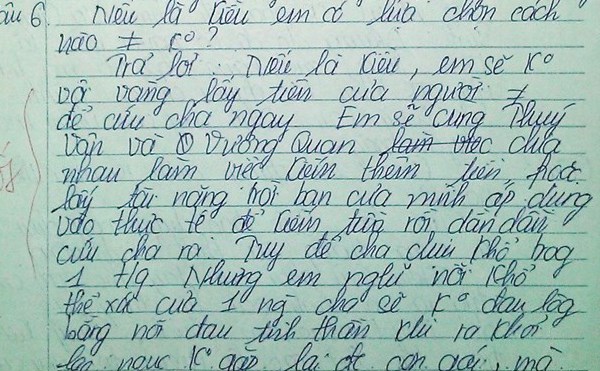 Câu 6. Nếu là Kiều em có lựa chọn cách
nào ≠ K° ?
Trả lời : Nếu là Kiều, em sẽ K°
vội vàng lấy tiền của người ≠
để cứu cha ngay. Em sẽ cùng Thuý
Vân và Vương Quan làm việc chia
nhau làm việc kiếm thêm tiền hoặc
lấy tài năng trời ban của mình áp dụng
vào thực tế để kiếm tiền rồi dần dần
cứu cha ra. Tuy để cha chịu khổ trog
1 t/g. Nhưng em nghĩ nỗi khổ
thể xác của 1 ng cha sẽ K° đau lòg
bằng nỗi đau tinh thần khi ra khỏi
ngục K° gặp lại đc con gái, mà